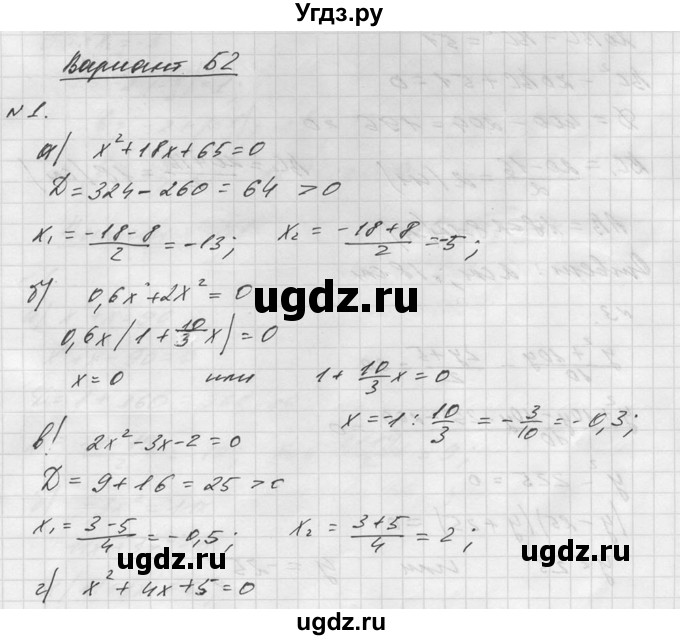 Угдз.ру
Вариант Б2
№1.
а) x²+18x+65=0
D=324-260=64 >0
x₁=(-18-8)/2=-13; x₂=(-18+8)/2=-5;
б) 0,6x+2x²=0
0,6x(1+10/3 x)=0
x=0 или 1+10/3 x=0
x=-1:10/3=-3/10=-0,3;
в) 2x²-3x-2=0
D=9+16=25>0
x₁=(3-5)/4=-0,5; x₂=(3+5)/4=2;
г) x²+4x+5=0
ugdz.ru
ugdz.ru
ugdz.ru
ugdz.ru